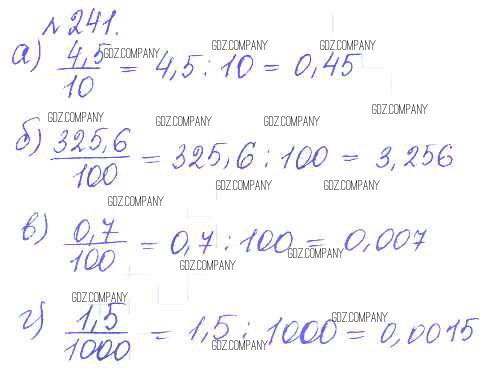 № 241.
а) 4,5/10 = 4,5 : 10 = 0,45
б) 325,6/100 = 325,6 : 100 = 3,256
в) 0,7/100 = 0,7 : 100 = 0,007
г) 1,5/1000 = 1,5 : 1000 = 0,0015
GDZ.COMPANY GDZ.COMPANY GDZ.COMPANY
GDZ.COMPANY
GDZ.COMPANY GDZ.COMPANY GDZ.COMPANY
GDZ.COMPANY GDZ.COMPANY
GDZ.COMPANY
GDZ.COMPANY
GDZ.COMPANY
GDZ.COMPANY
GDZ.COMPANY
GDZ.COMPANY